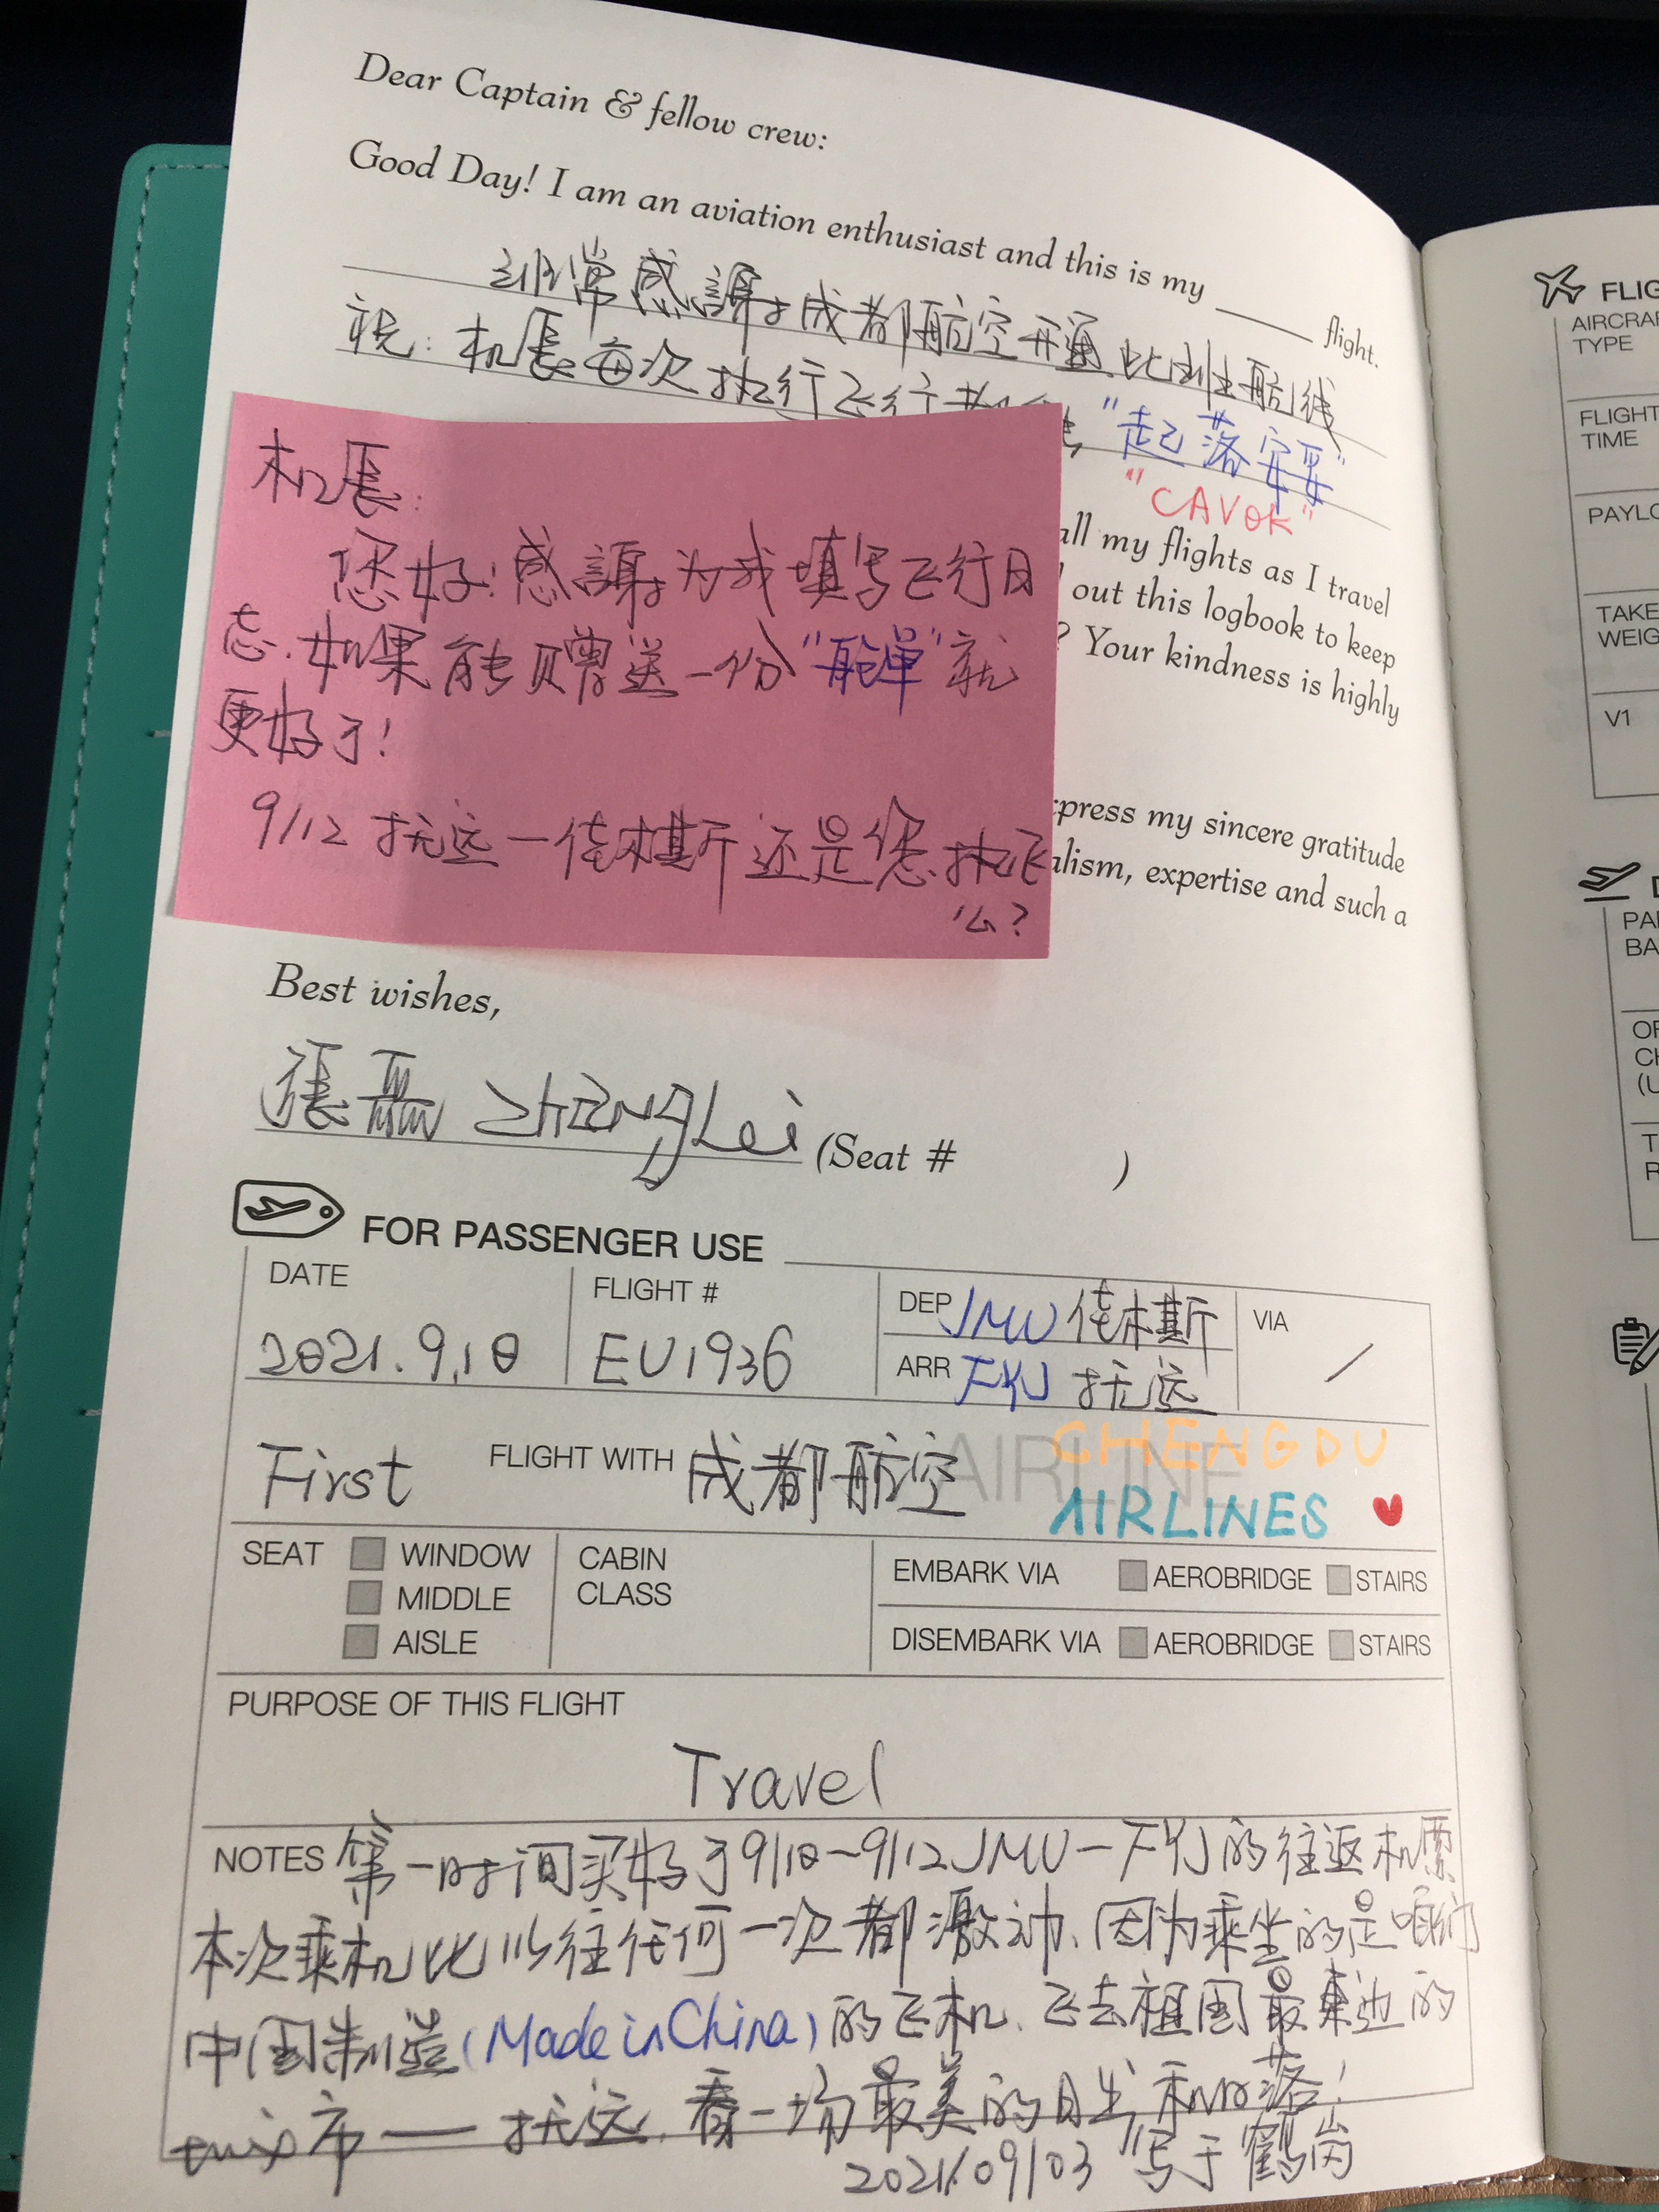 Dear Captain & fellow crew:
Good Day! I am an aviation enthusiast and this is my ____ flight.
非常感謝成都航空开通此班航线
祝:机長每次执行飞行都 "起落安妥"
"CAVOK"
机長:
您好!感謝为我填写飞行日
志.如果能赠送一份"舱单"就
更好了!
9/12 抚远一佳木斯还是您执飞
么?
all my flights as I travel
out this logbook to keep
? Your kindness is highly
press my sincere gratitude
alism, expertise and such a
Best wishes,
張磊 ZHANGLei (Seat # )
FOR PASSENGER USE
DATE
2021.9.10
FLIGHT #
EU1936
DEP JMU 佳木斯
ARR FYJ 抚远
VIA
/
First FLIGHT WITH 成都航空 AIRLINE
CHENGDU
AIRLINES
SEAT
WINDOW
MIDDLE
AISLE
CABIN
CLASS
EMBARK VIA AEROBRIDGE STAIRS
DISEMBARK VIA AEROBRIDGE STAIRS
PURPOSE OF THIS FLIGHT
Travel
NOTES 第一时间买好了9/10~9/12JMU-FYJ的往返机票
本次乘机比以往任何一次都激动.因为乘坐的是咱们
中国制造(Made in China)的飞机.飞去祖国最東边的
市——抚远.看一场最美的日出和日落!
2021/09/03 写于鶴岗
FLIG
AIRCRA
TYPE
FLIGHT
TIME
PAYLO
TAKE
WEIG
V1
D
PA
BA
OF
CH
(U
T
R